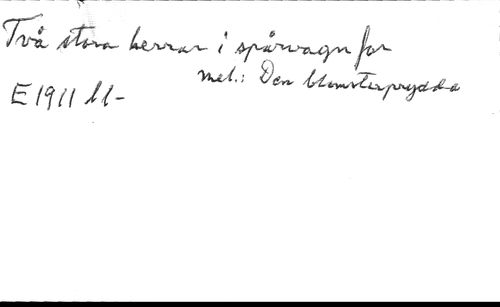 Två stora herrar i spårvagn for
mel.: Den blomsterprydda
E 1911 ll-